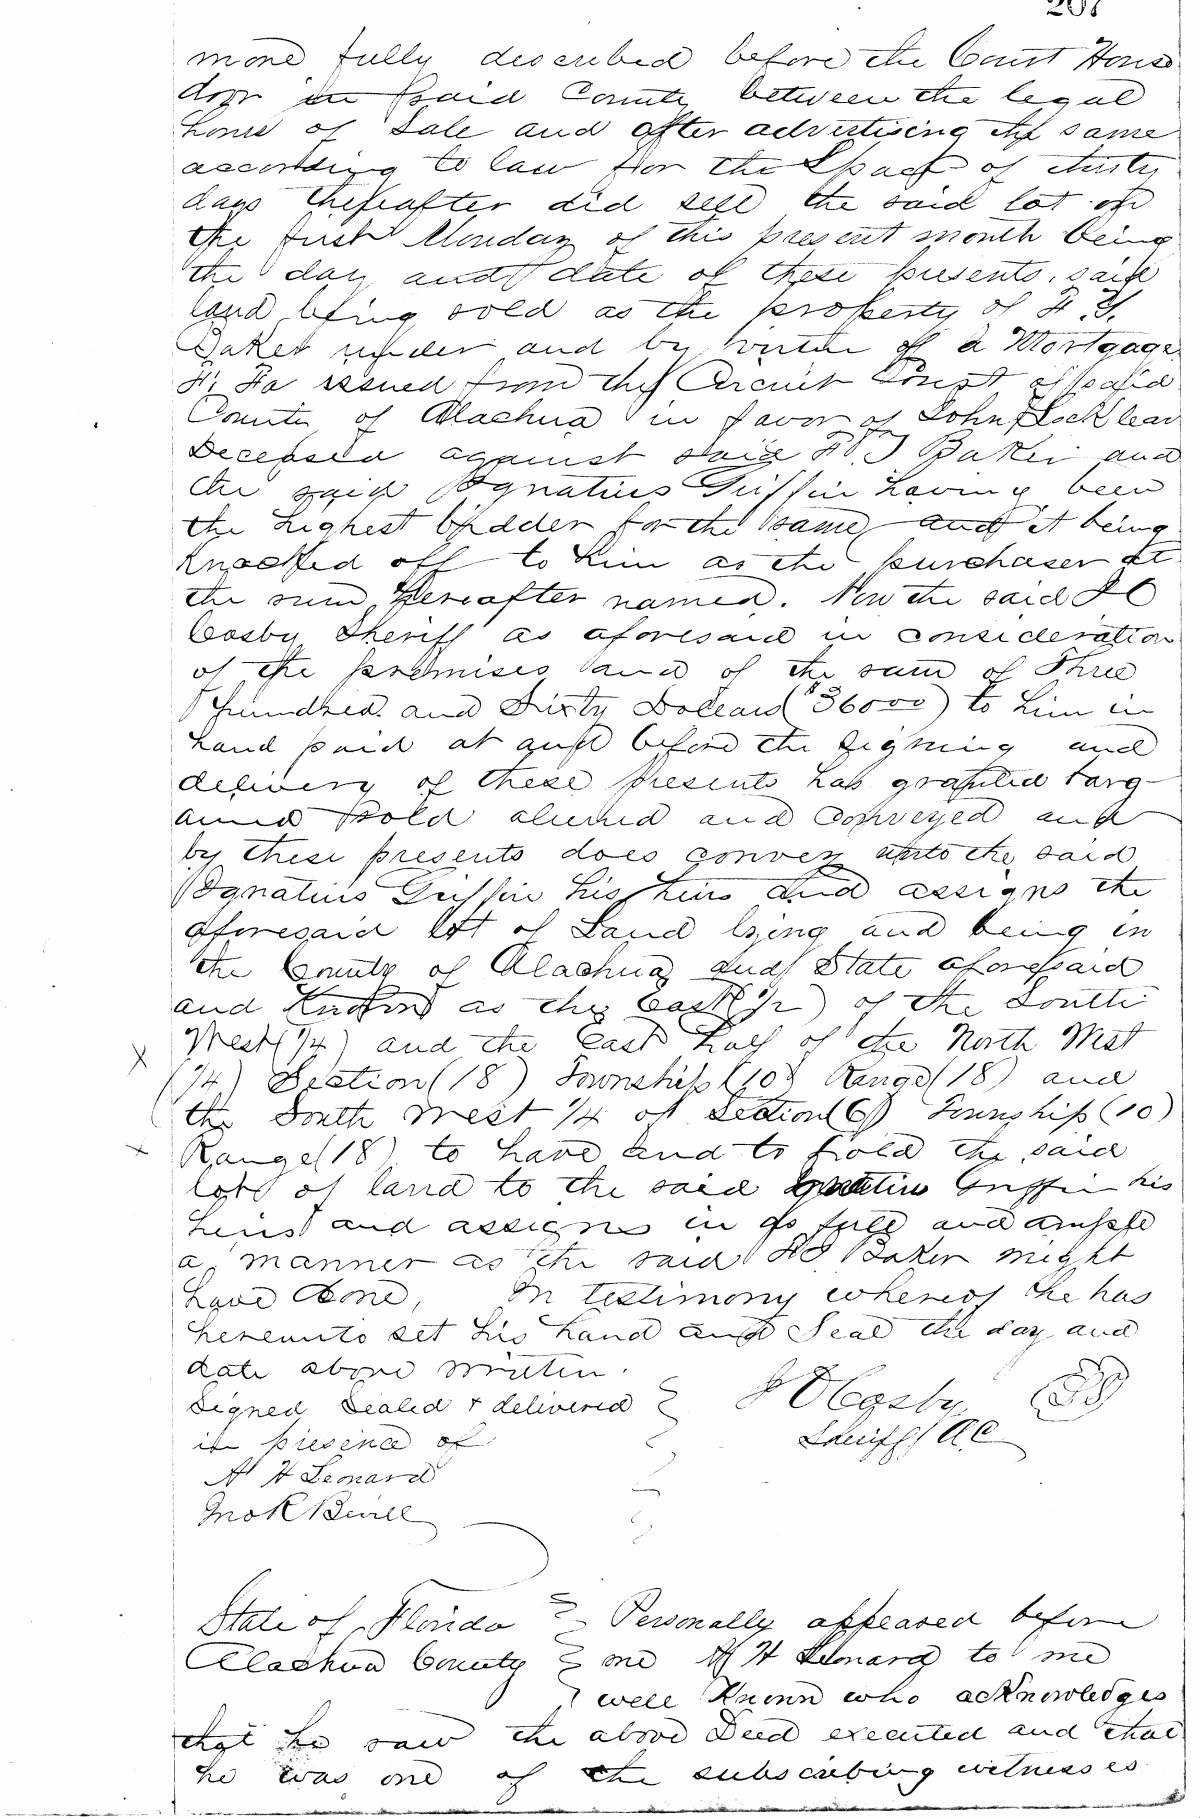 207
more fully described before the Court House
door in said County between the legal
hours of Sale and after advertising the same
according to law for the Space of thirty
days thereafter did sell the said lot on
the first Monday of this present month being
the day and date of these presents. said
land being sold as the property of
Baker under and by virtue of a Mortgage
Fi Fa issued from the Circuit Court of said
County of Alachua in favor of John Locklear
Deceased against said Baker and
the said Ignatius Griffin having been
the highest bidder for the same and it being
Knocked off to him as the purchaser at
the sum hereafter named. Now the said
Cosby Sheriff as aforesaid in consideration
of the premises and of the sum of Three
Hundred and Sixty Dollars ($36000) to him in
hand paid at and before the signing and
delivery of these presents has granted barg-
ained sold aliened and conveyed and
by these presents does convey unto the said
Ignatius Griffin his heirs and assigns the
aforesaid lot of Land lying and being in
the County of Alachua and State aforesaid
and Known as the East (1/2) of the South
West (1/4) and the East half of the North West
X (1/4) Section (18) Township (10) Range (18) and
the South West 1/4 of Section (6) Township (10)
x Range (18) to have and to hold the said
lots of land to the said Ignatius Griffin his
heirs and assigns in as full and ample
a manner as the said Baker might
have done, In testimony whereof he has
hereunto set his hand and Seal the day and
date above written.
Signed Sealed + delivered
in presence of
H H Leonard
Jno R Bevill
Cosby
Sheriff A C
State of Florida Personally appeared before
Alachua County me H H Leonard to me
well Known who acknowledges
that he saw the above Deed executed and that
he was one of the subscribing witnesses